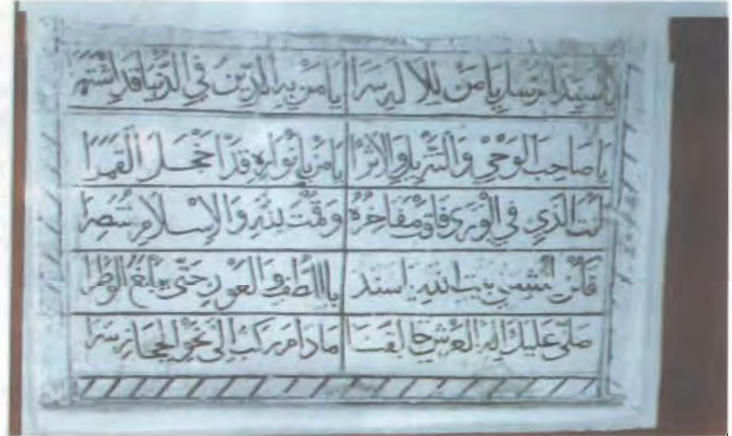 يا سيد الرسل يا من للإله سرا يا من به الدين في الدنيا قد اشتهرا
يا صاحب الوحي والتنزيل والاثرا يا من بأنواره قدا خجل القمرا
انت الذي في الورى فاقت مفاخره وقمت بالله والإسلام منتصرا
باللطف والعون حتى يبلغ الوطرا
صلى عليك اله العرش خالقنا ما دام ركب الى نحو الحجاز سرا